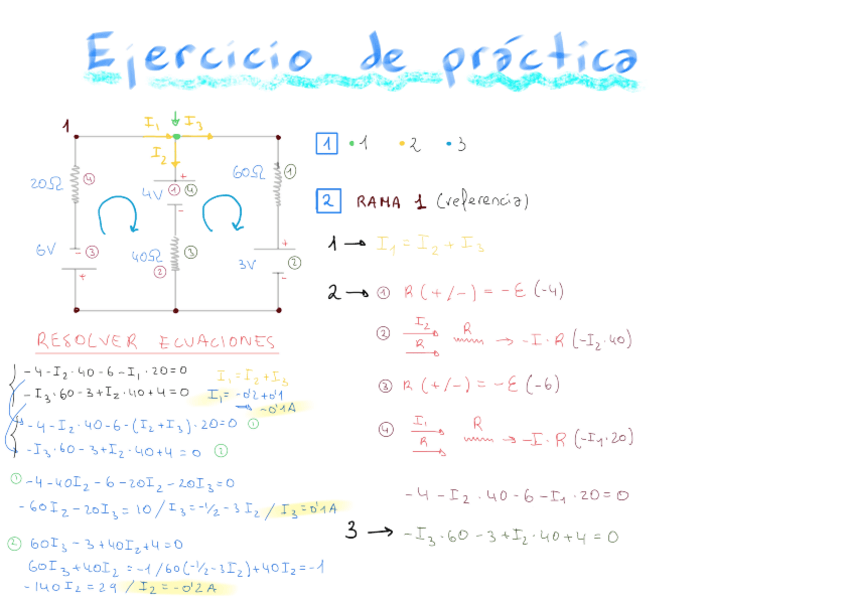 Ejercicio de práctica
1
I₁ I₃
I₂
20Ω ④
4V ① ④
+
-
60Ω ①
6V - ③
+
40Ω ③
②
3V ②
+
-
1 • 1 • 2 • 3
2 RAMA 1 (referencia)
1 → I₁ = I₂ + I₃
2 → ① R (+/-) = -E (-4)
② I₂ R R → -I·R (-I₂·40)
③ R (+/-) = -E (-6)
④ I₁ R R → -I·R (-I₁·20)
-4 - I₂·40 - 6 - I₁·20 = 0
3 → -I₃·60 - 3 + I₂·40 + 4 = 0
RESOLVER ECUACIONES
-4 - I₂·40 - 6 - I₁·20 = 0 I₁ = I₂ + I₃
-I₃·60 - 3 + I₂·40 + 4 = 0 I₁ = -0'2 + 0'1
→ -0'1A
-4 - I₂·40 - 6 - (I₂ + I₃)·20 = 0 ①
-I₃·60 - 3 + I₂·40 + 4 = 0 ②
① -4 - 40I₂ - 6 - 20I₂ - 20I₃ = 0
-60I₂ - 20I₃ = 10 / I₃ = -1/2 - 3I₂ / I₃ = 0'1A
② 60I₃ - 3 + 40I₂ + 4 = 0
60I₃ + 40I₂ = -1 / 60(-1/2 - 3I₂) + 40I₂ = -1
-140I₂ = 29 / I₂ = -0'2A